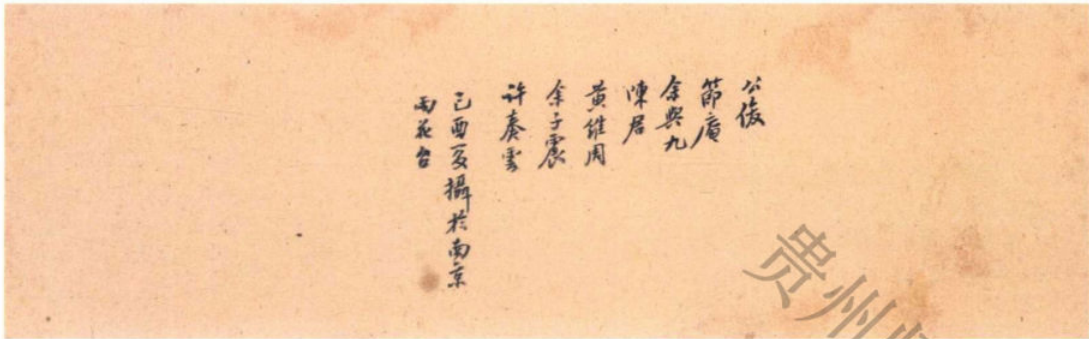 公俊
節庵
余與九
陳君
黄維周
余子震
許奏雲
己酉夏攝於南京
雨花台
贵州